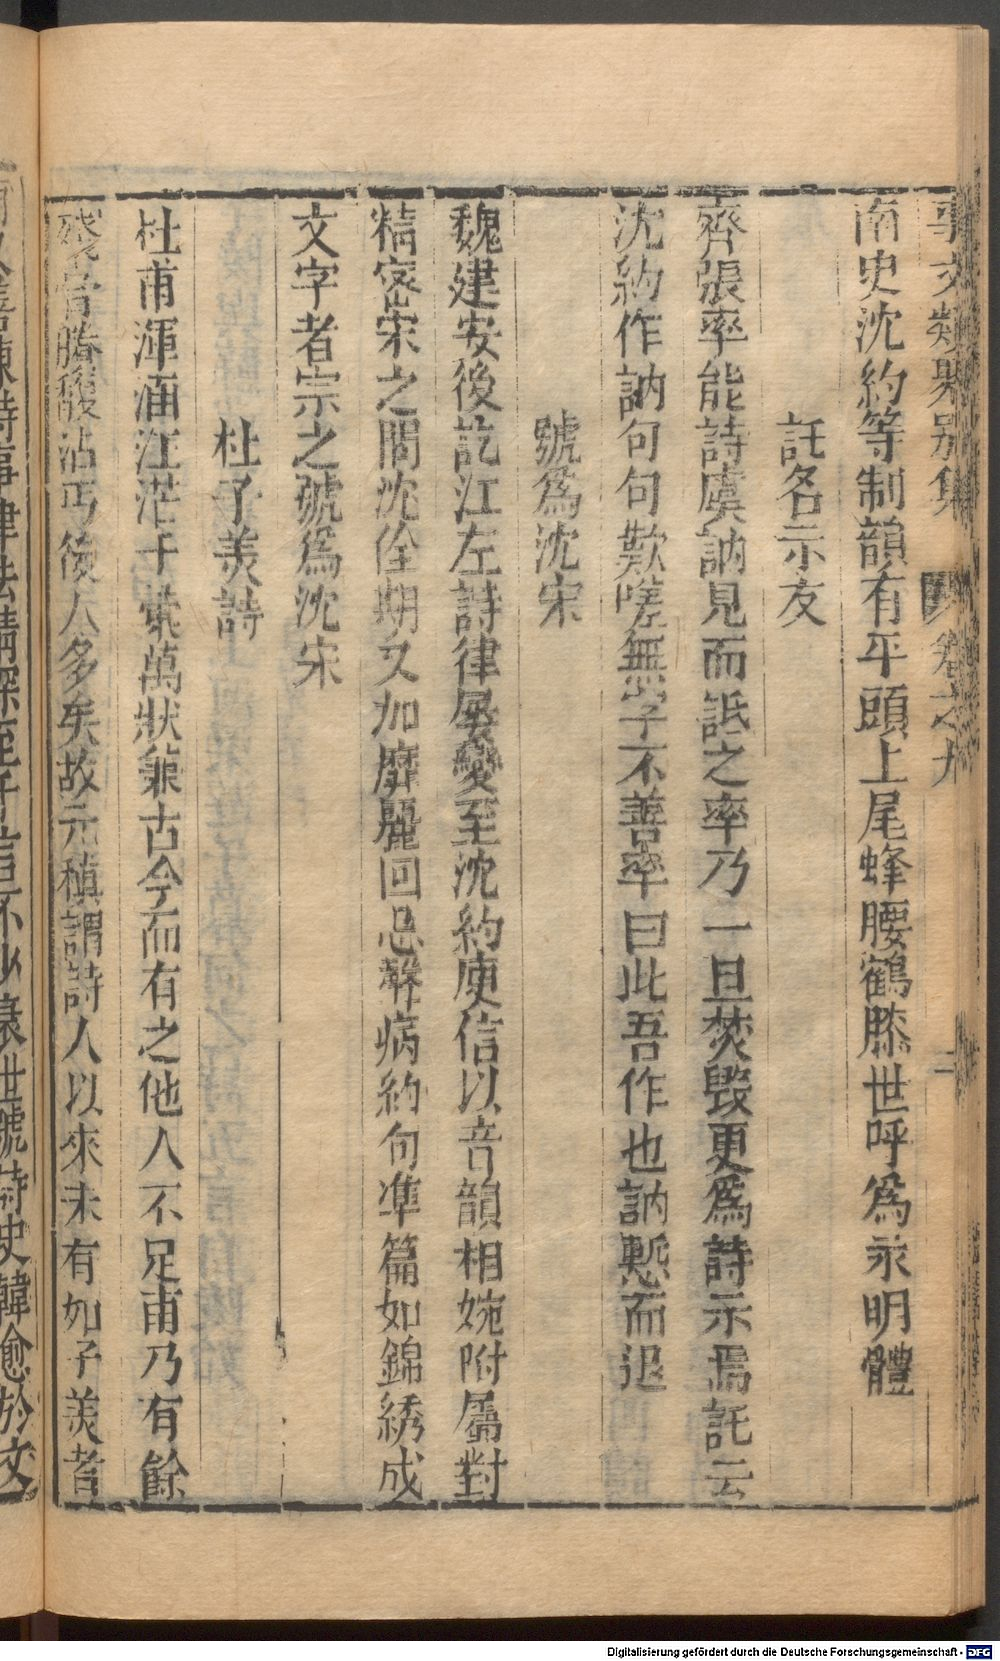 事文類聚別集 卷之九
二
南史沈約等制韻有平頭上尾蜂腰鶴膝世呼爲永明體
託名示友
齊張率能詩虞訥見而詆之率乃一旦焚毀更爲詩示焉託云
沈約作訥句句歎嗟無字不善率曰此吾作也訥慙而退
號爲沈宋
魏建安後訖江左詩律屢變至沈約庾信以音韻相婉附屬對
精密宋之問沈佺期又加靡麗回忌聲病約句凖篇如錦綉成
文字者宗之號爲沈宋
杜子美詩
杜甫渾涵汪茫千彙萬狀兼古今而有之他人不足甫乃有餘
殘膏賸馥沾丐後人多矣故元稹謂詩人以來未有如子美者
甫又善陳時事律法精深至千言不少衰世號詩史韓愈於文
Digitalisierung gefördert durch die Deutsche Forschungsgemeinschaft - DFG